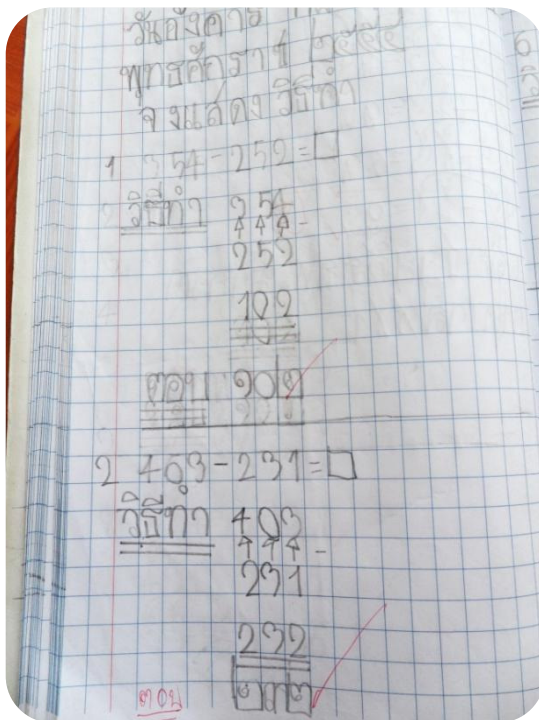 วันอังคาร
พุทธศักราช ๒๕๕๕
จงแสดงวิธีทำ
1 354-252=□
วิธีทำ 354
-
252
102
ตอบ ๑๐๒
2 403-231=□
วิธีทำ 403
-
231
232
ตอบ ๒๓๒